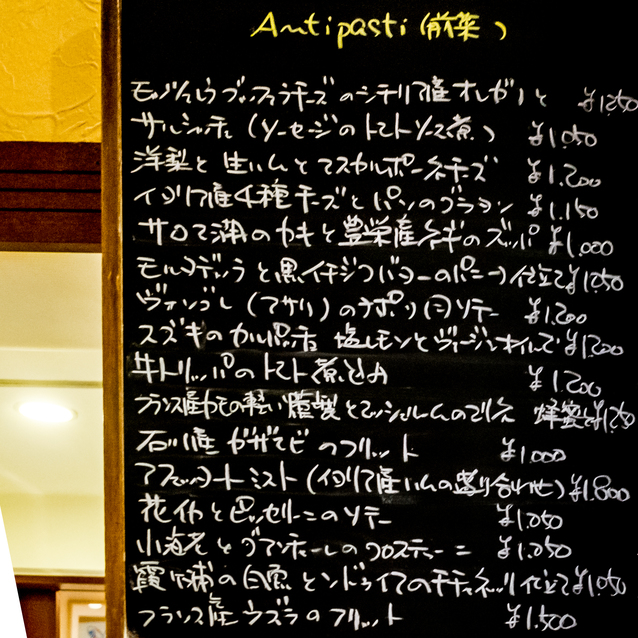 Antipasti (前菜)
モッツァレラブッファラチーズのシチリア産オレガノと ¥1,250
サルシッチャ (ソーセージのトマトソース煮) ¥1,050
洋梨と生ハムとマスカルポーネチーズ ¥1,200
イタリア産4種チーズとパンのグラタン ¥1,150
サロマ湖のカキと豊栄産ネギのズッパ ¥1,000
モルタデッラと黒イチジク バターのポニー 仕立て ¥1,050
ヴォンゴレ (アサリ) のナポリ風ソテー ¥1,200
スズキのカルパッチョ 塩レモンとヴァージンオイルで ¥1,200
牛トリッパのトマト煮込み ¥1,200
フランス産カモの軽い燻製とマッシュルームの 蜂蜜と ¥1,250
石川産ガザエビのフリット ¥1,000
アフェッタートミスト (イタリア産ハムの盛り合わせ) ¥1,800
花イカとピッセリーニのソテー ¥1,050
小海老とブアンホーレのクロスティーニ ¥1,050
霞ヶ浦の白魚とンドゥイアのチチャネッリ仕立て ¥1,050
フランス産ウズラのフリット ¥1,500